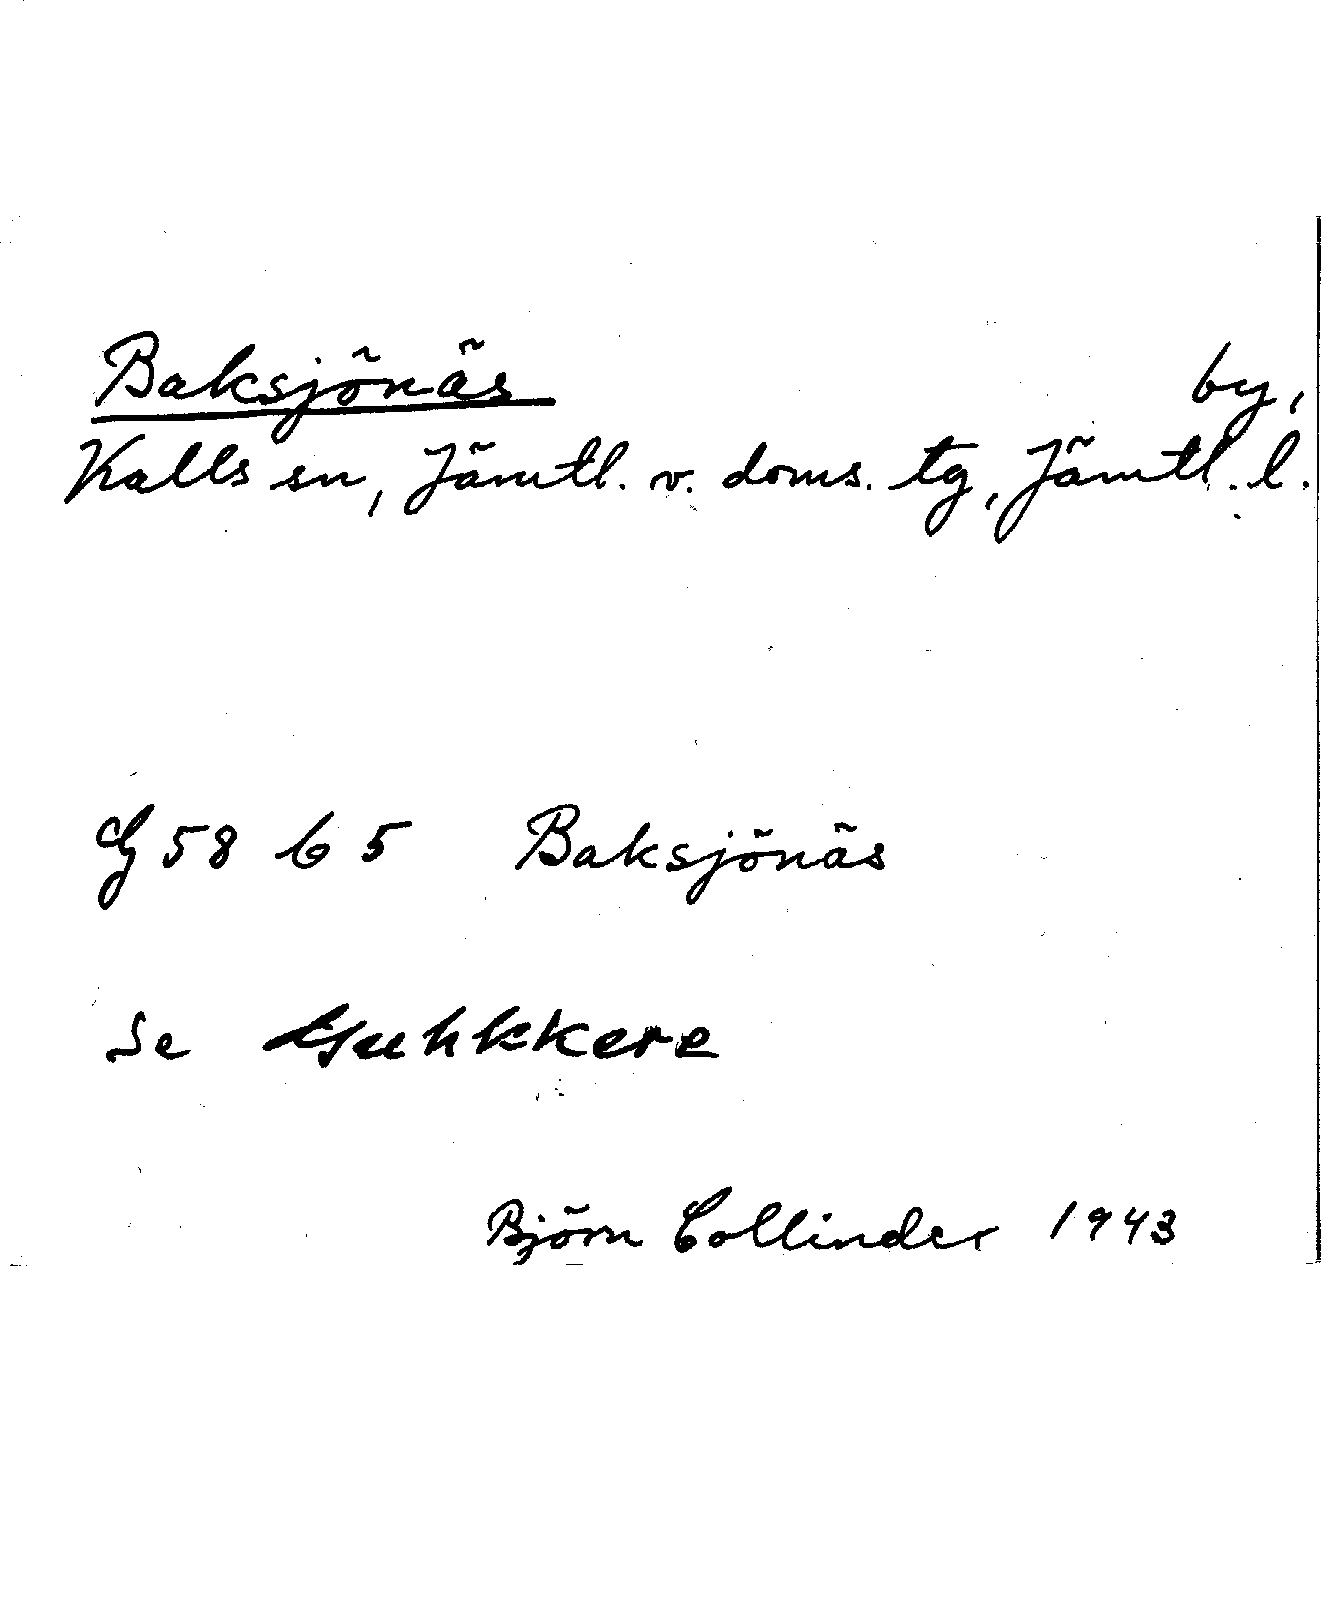 Baksjönäs by,
Kalls sn, Jämtl. v. doms. tg, Jämtl. l.
G 58 b 5 Baksjönäs
Se Guhkkere
Björn Collinder 1943